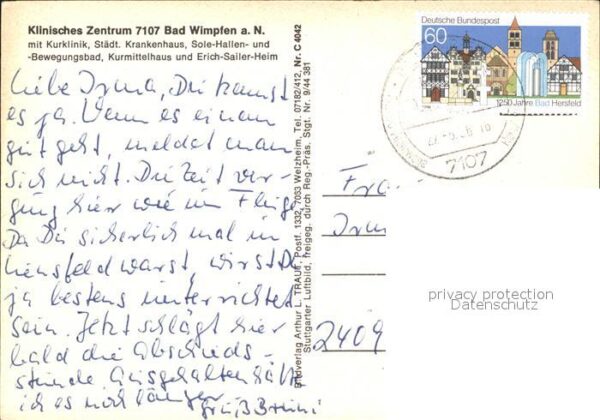 Klinisches Zentrum 7107 Bad Wimpfen a. N.
mit Kurklinik, Städt. Krankenhaus, Sole-Hallen- und
-Bewegungsbad, Kurmittelhaus und Erich-Sailer-Heim
Liebe Irma, Du kennst
es ja. Wenn es einem
gut geht, meldet man
sich nicht. Die Zeit ver-
ging hier wie im Fluge.
Da Du sicherlich mal in
warst, wirst Du
ja bestens unterrichtet
sein. Jetzt schlägt hier
bald die Abschieds-
stunde. Ausgehalten hätte
ich es noch länger.
Gruß
Bildverlag Arthur L. TRAUB, Postf. 1332, 7063 Welzheim, Tel. 07182/412, Nr. C 4042
Stuttgarter Luftbild, freigeg. durch Reg.-Präs. Stgt. Nr. 9/44 381
Deutsche Bundespost
60
1250 Jahre Bad Hersfeld
7107
Fra
Irm
2409
privacy protection
Datenschutz